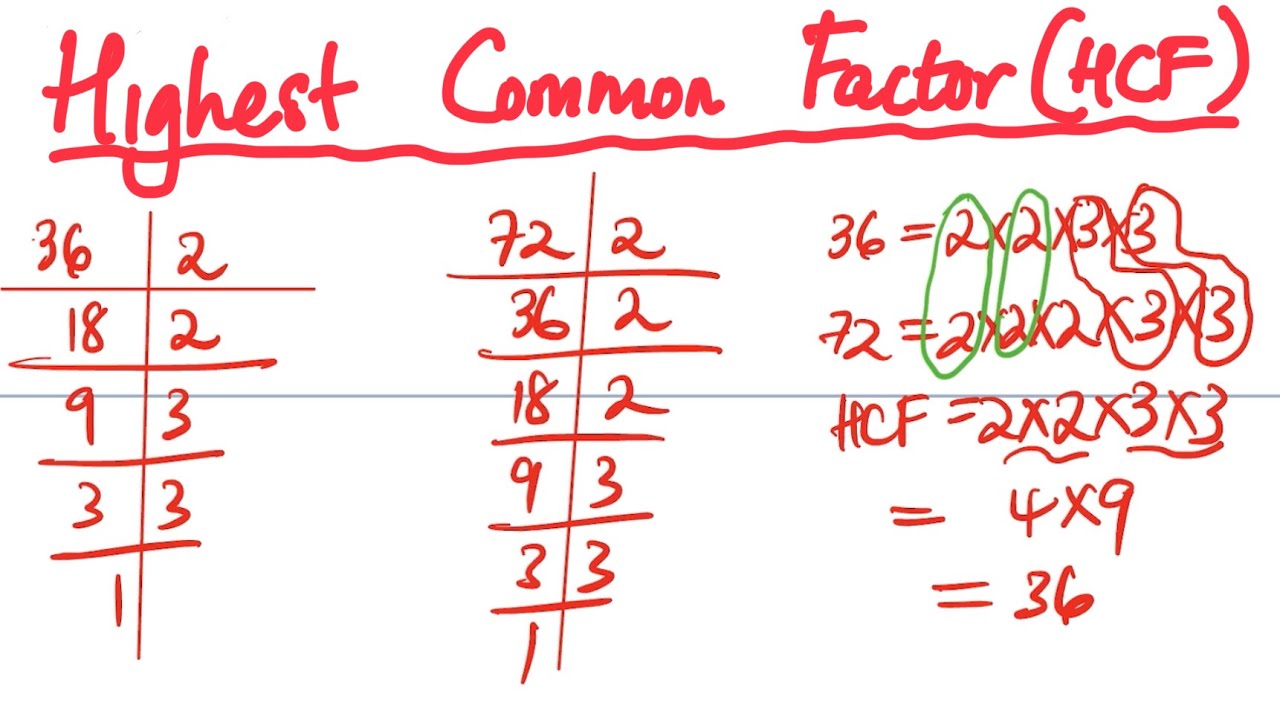 Highest Common Factor (HCF)
36 2
18 2
9 3
3 3
1
72 2
36 2
18 2
9 3
3 3
1
36 = 2×2×3×3
72 = 2×2×2×3×3
HCF = 2×2×3×3
= 4×9
= 36